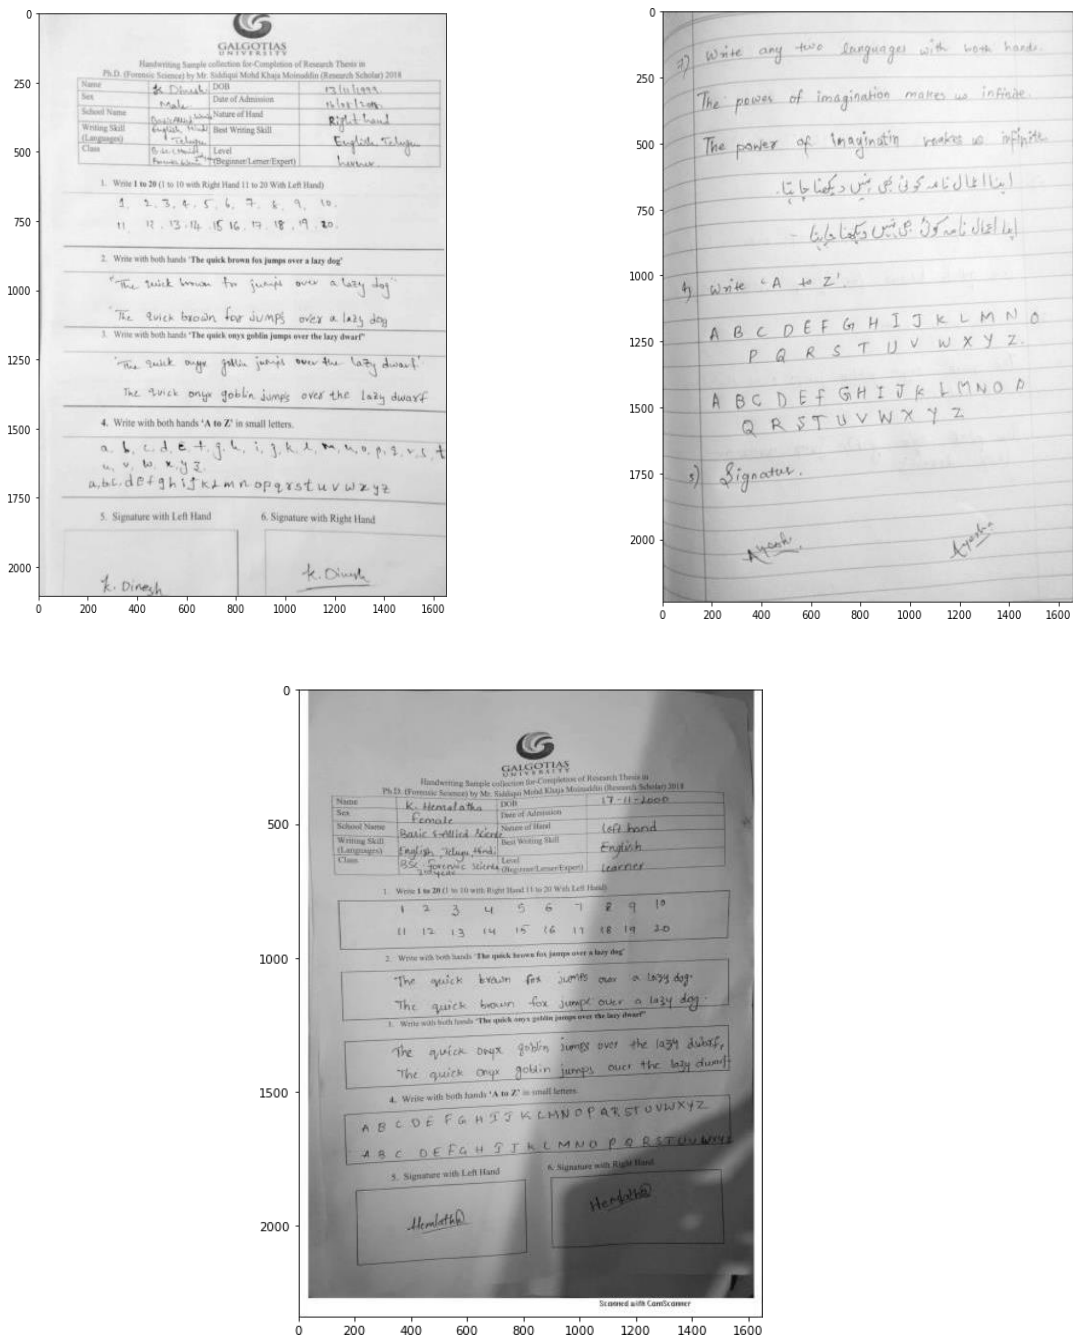 GALGOTIAS
UNIVERSITY
Handwriting Sample collection for-Completion of Research Thesis in
Ph.D. (Forensic Science) by Mr. Siddiqui Mohd Khaja Moinuddin (Research Scholar) 2018
Name K. Dinesh DOB 13/11/1999
Sex Male Date of Admission
School Name Nature of Hand Right hand
Writing Skill (Languages) English, Hindi Telugu Best Writing Skill English, Telugu
Class Level (Beginner/Lerner/Expert)
1. Write 1 to 20 (1 to 10 with Right Hand 11 to 20 With Left Hand)
1, 2, 3, 4, 5, 6, 7, 8, 9, 10.
11, 12, 13, 14, 15 16, 17, 18, 19, 20.
2. Write with both hands 'The quick brown fox jumps over a lazy dog'
"The quick brown fox jumps over a lazy dog"
"The quick brown fox jumps over a lazy dog
3. Write with both hands 'The quick onyx goblin jumps over the lazy dwarf'
"The quick onyx goblin jumps over the lazy dwarf'
The quick onyx goblin jumps over the lazy dwarf
4. Write with both hands 'A to Z' in small letters.
a, b, c, d, e, f, g, h, i, j, k, l, m, n, o, p, q, r, s, t
u, v, w, x, y z.
a, b c, d e f g h i j k l m n o p q r s t u v w x y z
5. Signature with Left Hand 6. Signature with Right Hand
K. Dinesh K. Dinesh
0 250 500 750 1000 1250 1500 1750 2000
0 200 400 600 800 1000 1200 1400 1600
Write any two languages with both hands.
The power of imagination makes us infinite.
The power of imaginatin makes us infinite
اپنا اعمال نامہ کوئی بھی نہیں دیکھنا چاہتا۔
اپنا اعمال نامہ کوئی بھی نہیں دیکھنا چاہتا -
4) Write 'A to Z'.
A B C D E F G H I J K L M N O
P Q R S T U V W X Y Z.
A B C D E F G H I J K L M N O P
Q R S T U V W X Y Z
5) Signatur.
Ayesha Ayesha
0 250 500 750 1000 1250 1500 1750 2000
0 200 400 600 800 1000 1200 1400 1600
GALGOTIAS
UNIVERSITY
Handwriting Sample collection for-Completion of Research Thesis in
Ph.D. (Forensic Science) by Mr. Siddiqui Mohd Khaja Moinuddin (Research Scholar) 2018
Name K. Hemalatha DOB 17-11-2000
Sex Female Date of Admission
School Name Basic & Allied Science Nature of Hand Left hand
Writing Skill (Languages) English, Telugu, Hindi Best Writing Skill English
Class BSc Forensic Science 2nd year Level (Beginner/Lerner/Expert) Learner
1. Write 1 to 20 (1 to 10 with Right Hand 11 to 20 With Left Hand)
1 2 3 4 5 6 7 8 9 10
11 12 13 14 15 16 17 18 19 20
2. Write with both hands 'The quick brown fox jumps over a lazy dog'
The quick brown fox jumps over a lazy dog.
The quick brown fox jumps over a lazy dog.
3. Write with both hands 'The quick onyx goblin jumps over the lazy dwarf'
The quick onyx goblin jumps over the lazy dwarf,
The quick onyx goblin jumps over the lazy dwarf.
4. Write with both hands 'A to Z' in small letters.
A B C D E F G H I J K L M N O P Q R S T U V W X Y Z
A B C D E F G H I J K L M N O P Q R S T U V W X Y Z
5. Signature with Left Hand 6. Signature with Right Hand
Hemlatha Hemlatha
Scanned with CamScanner
0 500 1000 1500 2000
0 200 400 600 800 1000 1200 1400 1600